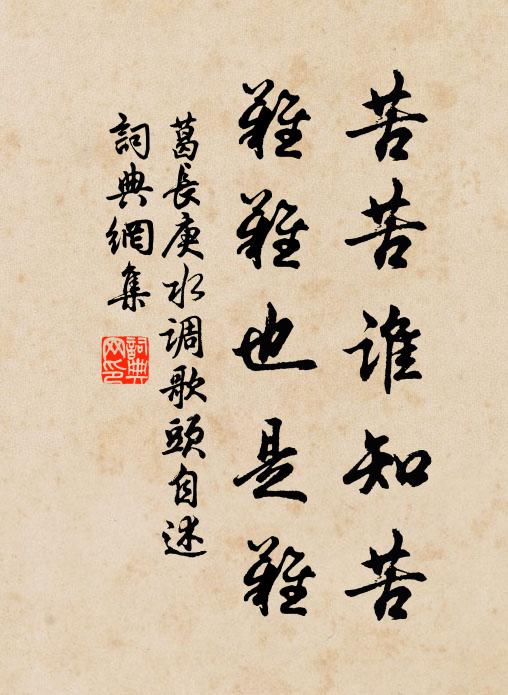 苦苦谁知苦
難難也是難
葛長庚水调歌頭自述
詞典網集
詞典网印